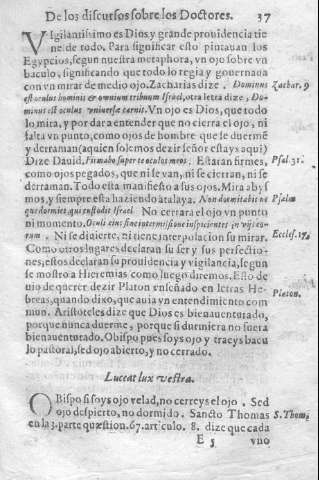 De los discursos sobre los Doctores. 37
VIgilantissimo es Dios, y grande prouidencia tie
ne de todo. Para significar esto pintauan los
Egypcios, segun nuestra metaphora, vn ojo sobre vn
baculo, significando que todo lo regia y gouernaua
con vn mirar de medio ojo. Zacharias dize. Dominus Zachar. 9
est oculus hominis & omnium tribuum Israel, otra letra dize, Do-
minus est oculus vniuersæ carnis. Vn ojo es Dios, que todo
lo mira, y por dar a entender que no cierra el ojo, ni
falta vn punto, como ojos de hombre que se duermē
y derraman (a quien solemos dezir señor estays aqui)
Dize Dauid. Firmabo super te oculos meos. Estaran firmes, Psal. 31.
como ojos pegados, que ni se van, ni se cierran, ni se
derraman. Todo esta manifiesto a sus ojos. Mira abys
mos, y siempre esta haziendo atalaya. Non dormitabit ne Psalm
que dormiet, qui custodit Israel. No cerrara el ojo vn punto
ni momento. Oculi eius sine intermissione inspicientes in vijs eo-
rum. Ni se diuierte, ni tiene interpolacion su mirar. Eccles. 17.
Como otros lugares declaran su ser y sus perfectio-
nes, estos declaran su prouidencia y vigilancia, segun
se mostro a Hieremias como luego diremos. Esto de
uio de querer dezir Platon enseñado en letras He-
breas, quando dixo, que auia vn entendimiento com Platon.
mun. Aristoteles dize que Dios es bienauenturado,
porque nunca duerme, porque si durmiera no fuera
bienauenturado. Obispo pues soys ojo y traeys bacu
lo pastoral, sed ojo abierto, y no cerrado.
Luceat lux vestra.
OBispo si soys ojo velad, no cerreys el ojo. Sed
ojo despierto, no dormido. Sancto Thomas S. Thom.
en la 3. parte quæstion. 67. articulo. 8. dize que cada
E 5 vno